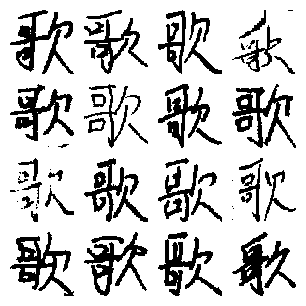 歌歌歌歌
歌歌歌歌
歌歌歌歌
歌歌歌歌